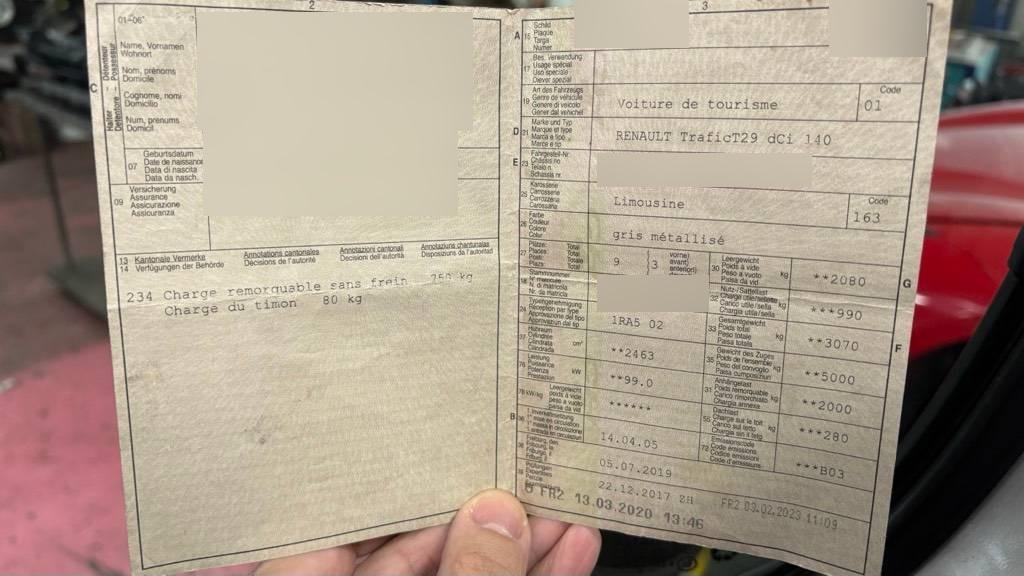 2
01-06
Name, Vornamen
Wohnort
Nom, prénoms
Domicile
Cognome, nomi
Domicilio
Num, prenums
Domicil
C
07
Geburtsdatum
Date de naissance
Data di nascita
Data da nasch.
09
Versicherung
Assurance
Assicurazione
Assicuranza
13 Kantonale Vermerke
14 Verfügungen der Behörde
Annotations cantonales
Décisions de l'autorité
Annotazioni cantonali
Decisioni dell'autorità
Annotaziuns chantunalas
Disposiziuns da l'autoritad
234 Charge remorquable sans frein 750 kg
Charge du timon 80 kg
3
A 15
Schild
Plaque
Targa
Numer
17
Bes. Verwendung
Usage spécial
Uso speciale
Diever spezial
19
Art des Fahrzeugs
Genre de véhicule
Genere di veicolo
Gener dal vehichel
Voiture de tourisme
Code
01
D 21
Marke und Typ
Marque et type
Marca e tipo
Marca e tip
RENAULT TraficT29 dCi 140
E 23
Fahrgestell-Nr.
Châssis no
Telaio n.
Schassis nr.
25
Karosserie
Carrosserie
Carrozzeria
Carossaria
Limousine
Code
163
26
Farbe
Couleur
Colore
Colur
gris métallisé
27
Plätze: Total
Places: Total
Posti: Totale
Plazs: Total
9
(3
vorne)
avant)
anteriori)
30
Leergewicht
Poids à vide
Peso a vuoto
Paisa da vid
kg
**2080
G
18
Stammnummer
N° matricule
N. di matricola
Nr. da matricla
32
Nutz-/Sattellast
Charge utile/sellette
Carico utile/sella
Chargia utila/sella
kg
***990
24
Typengenehmigung
Réception par type
Approvazione del tipo
Approvaziun dal tip
1RA5 02
33
Gesamtgewicht
Poids total
Peso totale
Paisa totala
kg
**3070
F
37
Hubraum
Cylindrée
Cilindrata
Cilindrada
cm³
**2463
35
Gewicht des Zuges
Poids de l'ensemble
Peso del convoglio
Paisa cumposiziun
kg
**5000
76
Leistung
Puissance
Potenza
Prestaziun
kW
**99.0
31
Anhängelast
Poids remorquable
Carico rimorchiato
Chargia annexa
kg
**2000
78 kW/kg
Leergewicht
poids à vide
peso a vuoto
paisa da vid
******
55
Dachlast
Charge sur le toit
Carico sul tetto
Chargia sin il tetg
kg
***280
B 36
1. Inverkehrsetzung
1re mise en circulation
1a messa in circolazione
14.04.05
72
Emissionscode
Code émissions
Codice emissioni
Code d'emissiuns
***B03
38
05.07.2019
39
Prüfungen
22.12.2017 2H
FR2 03.02.2023 11:09
FR2 13.03.2020 13:46